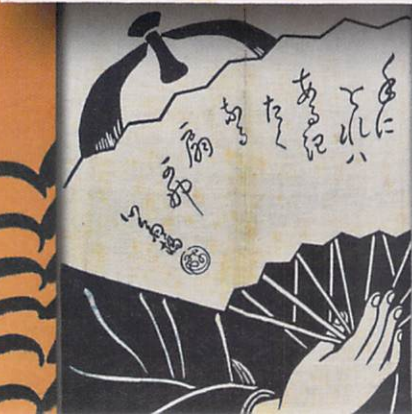 手に
とれハ
ある記
たく
なる
扇
可那